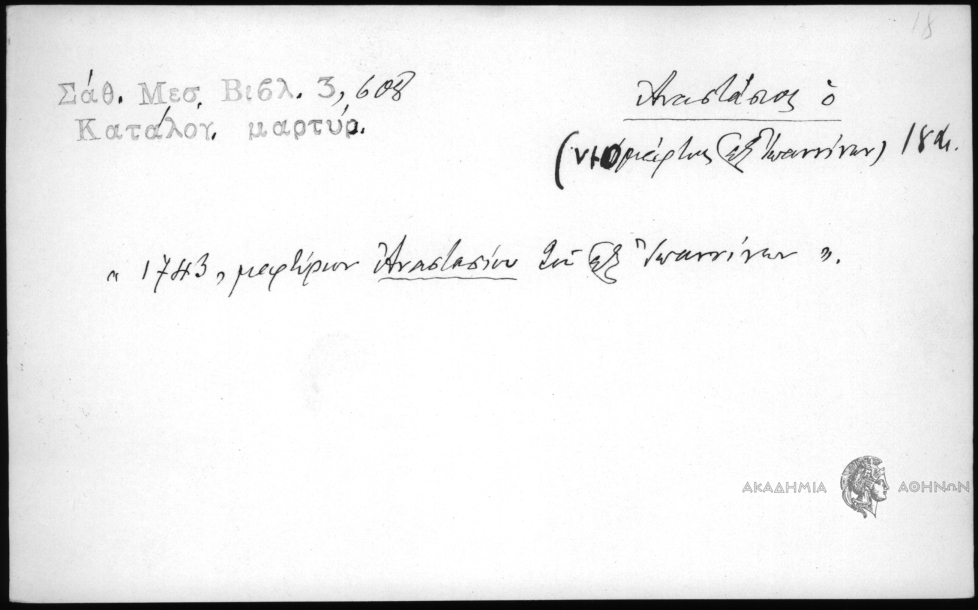 18
Σάθ. Μεσ. Βιβλ. 3, 608
Καταλόγ. μαρτύρ.
Ἀναστάσιος ὁ
(νεομάρτυς ἐξ Ἰωαννίνων) 18 αἰ.
« 1743, μαρτύριον Ἀναστασίου τοῦ ἐξ Ἰωαννίνων ».
ΑΚΑΔΗΜΙΑ ΑΘΗΝΩΝ